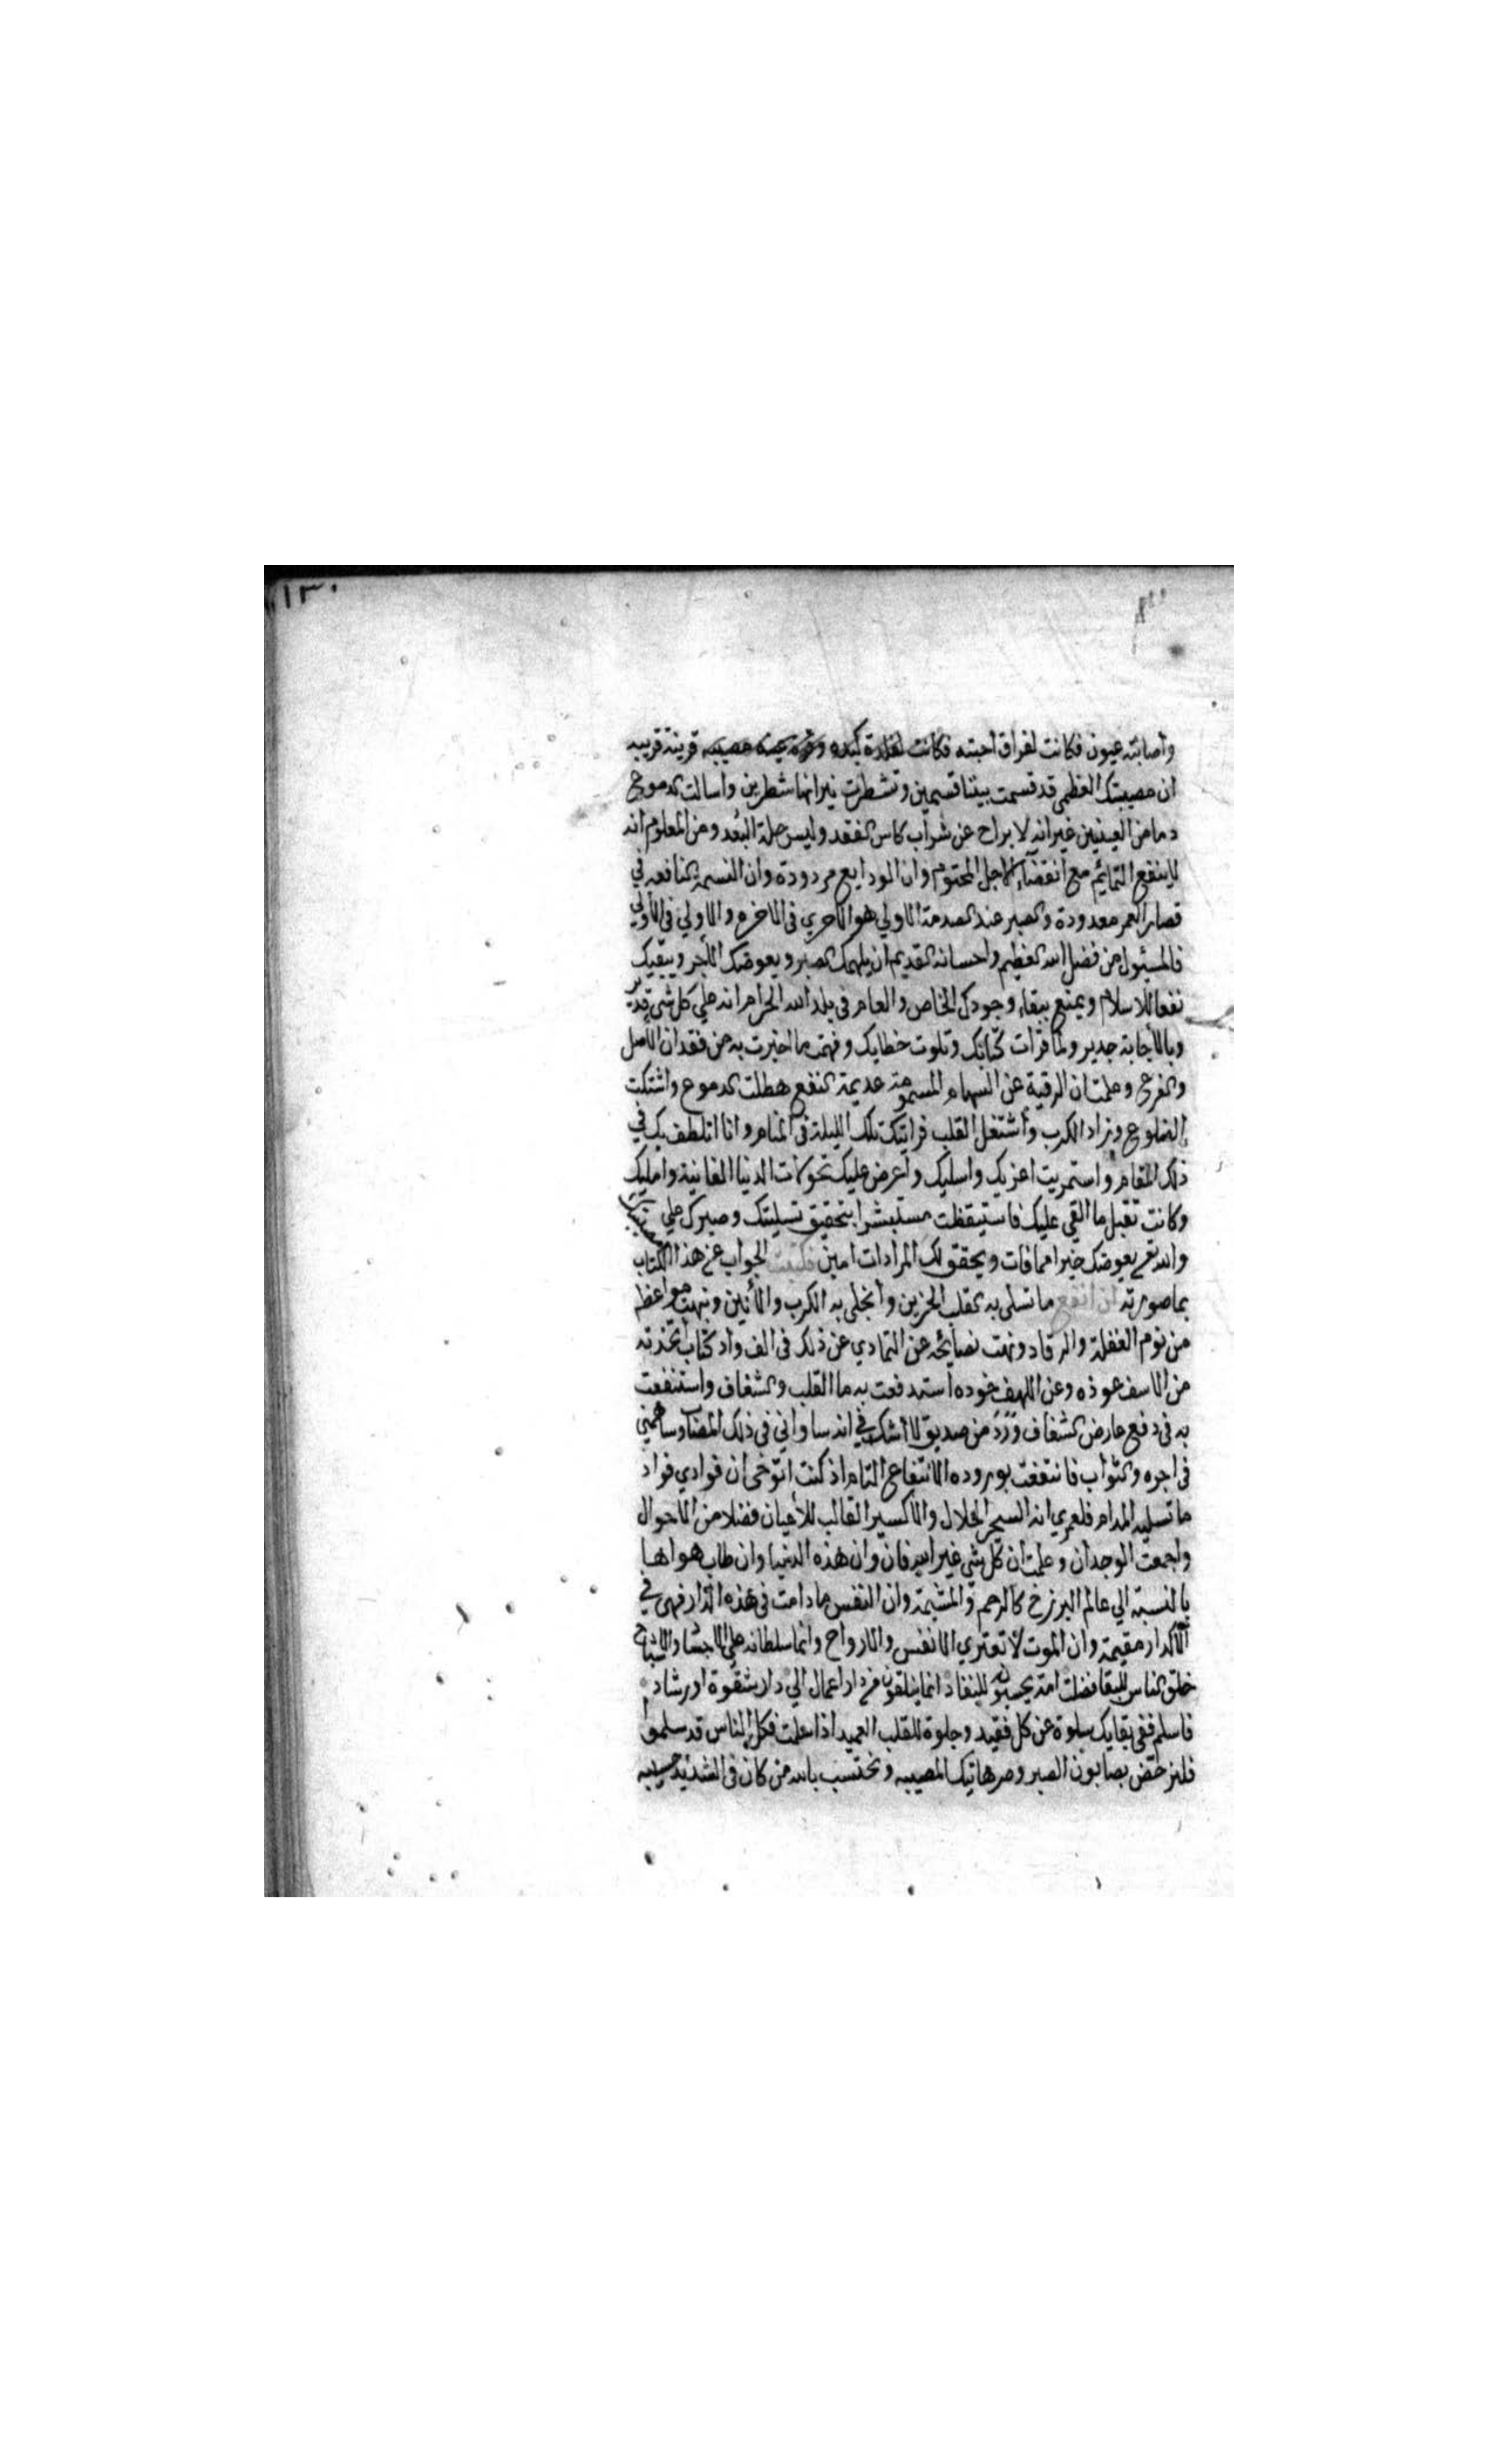 ١٣٠
وأصابته عيون فكانت لفراق احبته فكانت لفلذة كبده قرينة قريبه
ان مصيبتك العظمى قد قسمت بيننا قسمين وتشطرت نيرانها شطرين واسالت الدموع
دما من العينين غير انه لا براح عن شراب كاس الفقد وليس حلة البعد ومن المعلوم انه
لا ينفع التمائم مع انقضاء الاجل المحتوم وان الودايع مردودة وان النسمة النافعه في
قصار العمر معدودة والصبر عند الصدمة الاولي هو الاحري في الاخره والاولي في الأولي
فالمسئول من فضل الله العظيم واحسانه القديم ان يلهمك الصبر ويعوضك الأجر ويبقيك
نفعا للاسلام ويمتع ببقاء وجودك الخاص والعام في بلد الله الحرام انه علي كل شي قدير
وبالاجابة جدير ولما قرات كتابك وتلوت خطابك وفهمت ما اخبرت به من فقدان الاصل
والفرع وعلمت ان الرقية عن السهام المسمومة عديمة النفع هطلت الدموع واشتكت
الضلوع وزاد الكرب وأشتغل القلب فرايتك تلك الليلة في المنام وانا اتلطف بك في
ذلك المقام واستمريت اعزيك واسليك واعرض عليك تحولات الدنيا الفانية وامليك
وكانت تقبل ما القي عليك فاستيقظت مستبشرا بتحقيق تسليتك وصبرك علي
والله تعالى يعوضك خيرا مما فات ويحقق لك المرادات امين فكتبت الجواب عن هذا الكتاب
بما صورته ان انفع ما تسلى به القلب الحزين وأنجلى به الكرب والأنين ونبهت مواعظه
من نوم الغفلة والرقاد ونهت نصايحه عن التمادي عن ذلك في الفواد كتاب أتخذته
من الاسف عوذه وعن اللهف خوده استدفعت به ما القلب والشغاف واستنفعت
به في دفع عارض الشغاف وَرَدَ من صديق لا أشك في انه ساواني في ذلك المصاب وساهمني
في اجره والثواب فانتفعت بوروده الانتفاع التام اذ كنت اتوخى ان فوادي فواد
ما تسليه المدام فلعمري انه السحر الحلال والاكسير القالب للأعيان فضلا من الاحوال
واجمعت الوجدان وعلمت ان كل شي غير الله فان وان هذه الدنيا وان طاب هواها
بالنسبة الي عالم البرزخ كالرحم والمشيمة وان النفس ما دامت في هذه الدار فهي في
الأكدار مقيمة وان الموت لا تعتري الانفس والارواح وانما سلطانه علي الاجسام والاشباح
خلق الناس للبقا فضلت امة يحسبونهم للنفاد انما ينقلون من دار اعمال الي دار شقوة او رشاد
فاسلم ففي بقايك سلوة عن كل فقيد وجلوة للقلب العميد اذا سلمت فكل الناس قد سلموا
فلنرحض بصابون الصبر وضر هاتيك المصيبه ونحتسب بالله من كان في الشدايد حسيبه